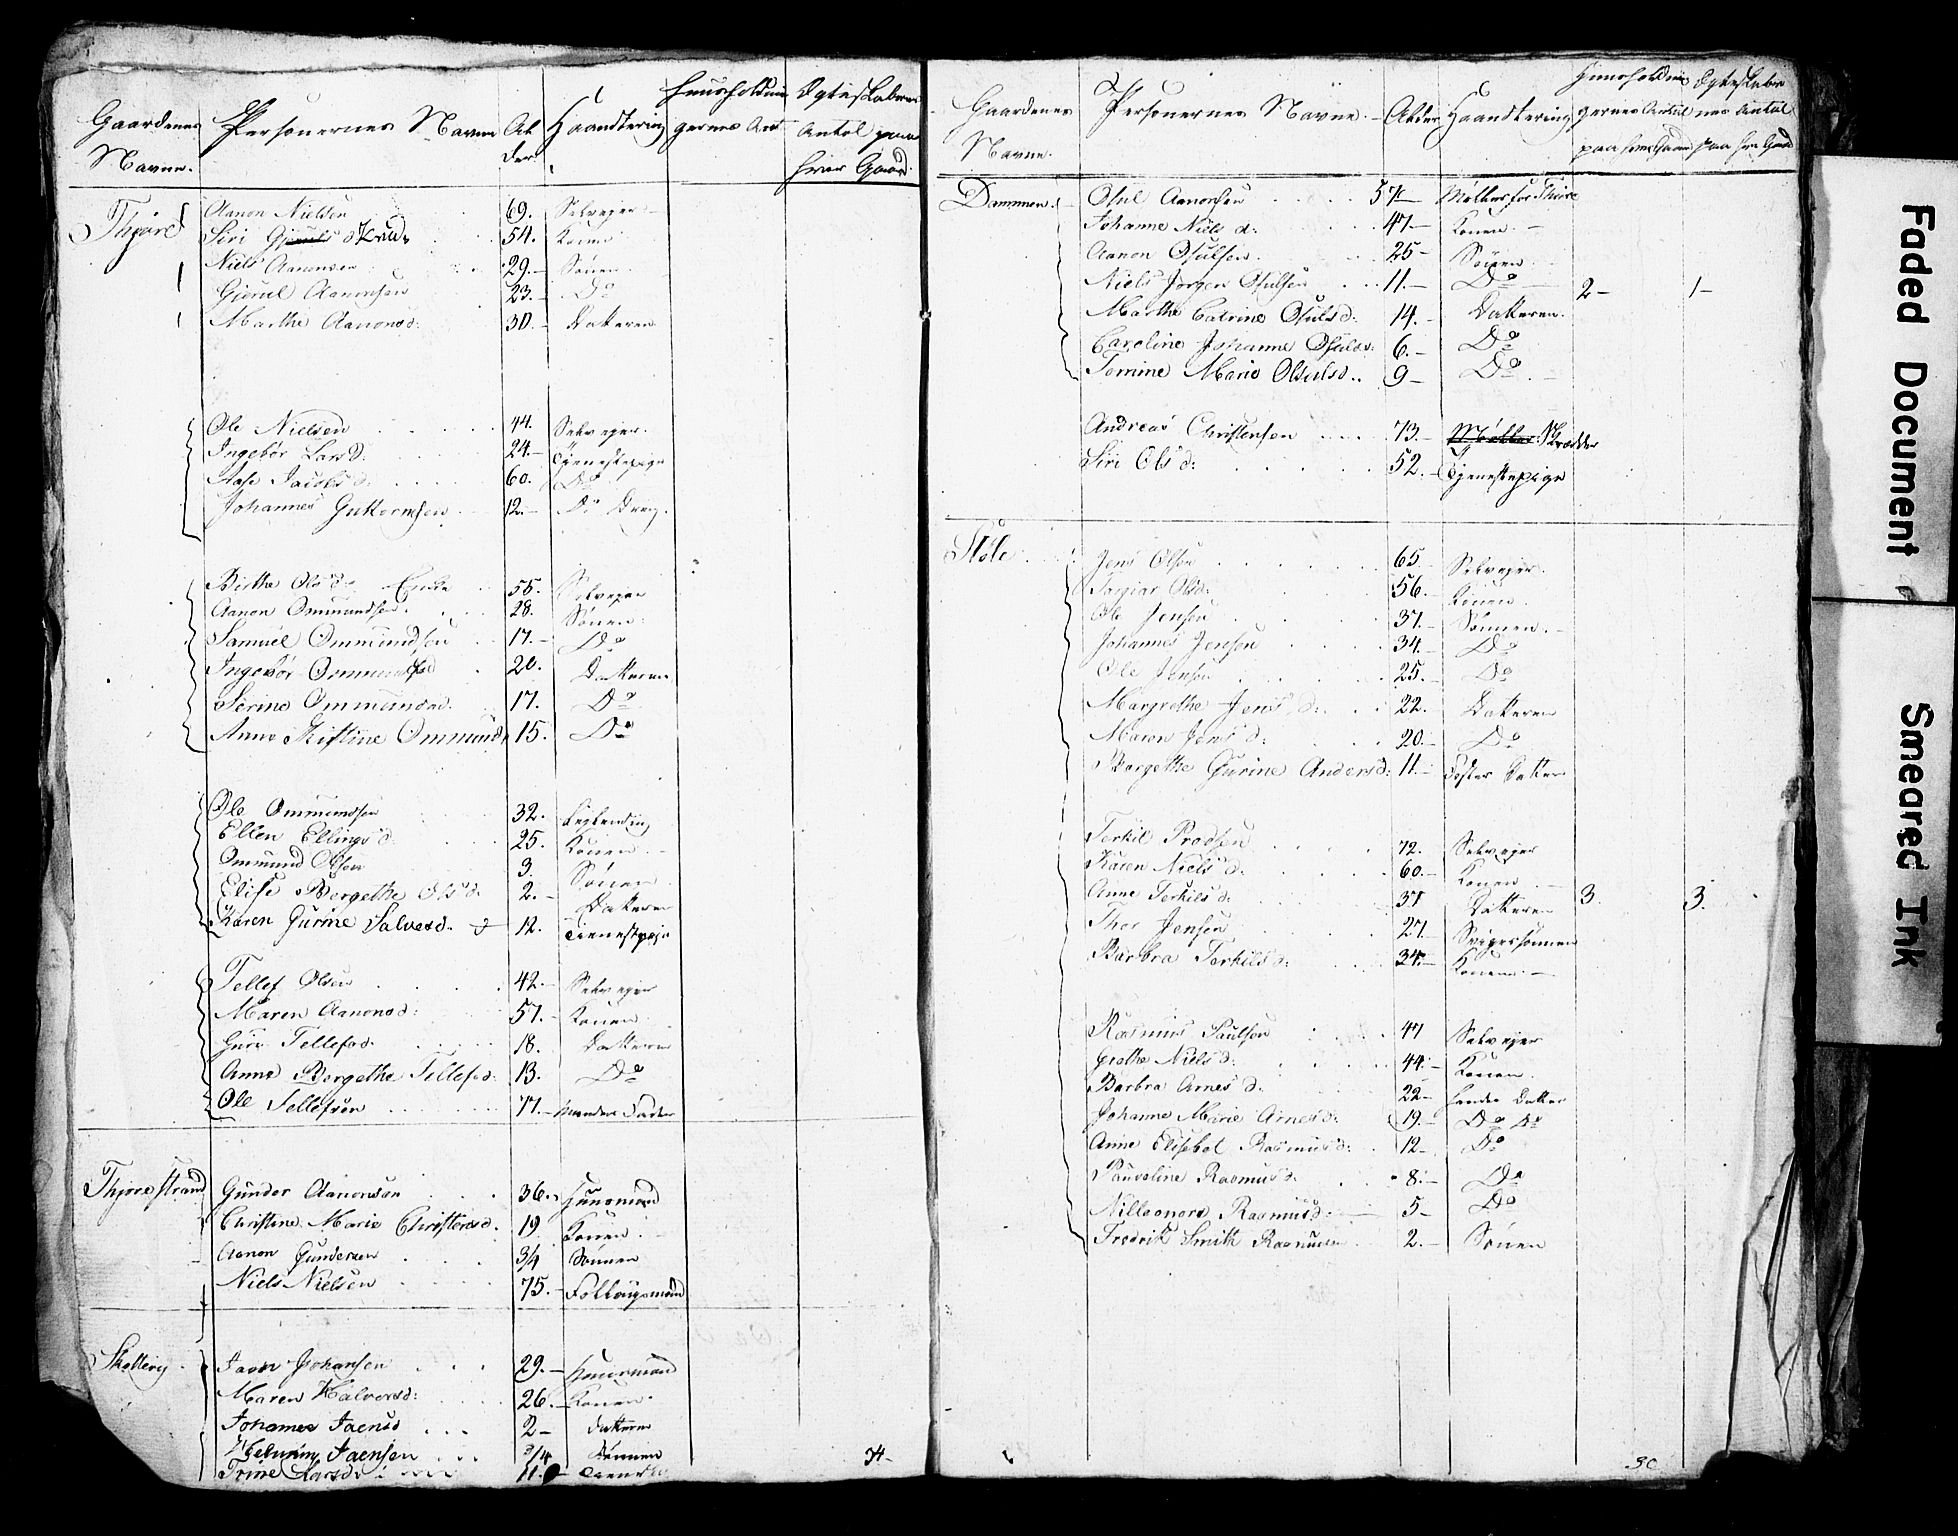 Gaardenes Navne. Personernes Navne Alder Haandtering Huusholdningernes Ant Ægteskabernes Antal paa hver Gaard.
Thjøre Aanon Nielsen 69. Selvejer
Siri 54. Konen
Niels Aanonsen 29. Sønen
Gjerul Aanonsen 23. Do
Marthe Aanonsd: 30. Datteren
Ole Nielsen 44. Selvejer.
Ingebor Larsd: 24. Tjenestepige
Aase Jacobsd: 60. Do
Johannes Guttormsen 12. Do Dreng.
Birthe Olsd: Enke 55. Selvejer
Aanon Ommundsen. 28. Sønen
Samuel Ommundsen 17. Do
Ingebor Ommundsd 20. Datteren
Serine Ommundsd. 17. Do
Anne Kistine Ommunds 15. Do
Ole Ommundsen 32. Leylending
Ellen Ellingsd. 25. Konen
Ommund Olsen 3. Sønen
Elise Bergethe Olsd. 2. Datteren
Karen Gurine Salvesd. 12. Tienestpije
Tellef Olsen 42. Selvejer
Maren Aanonsd: 57. Konen
Guro Tellefsd. 18. Datteren
Anne Bergethe Tellefsd. 13. Do
Ole Tellefsen 77. Mandens Fader
Thjørestrand Gunder Aanonsen 36. Huusmand
Christine Marie Christensd. 19 Konen
Aanon Gundersen 3/4 Sønnen
Niels Nielsen 75. Follaugsmand
Johansen 29. Huusmand
Maren Halvorsd: 26. Konen
Johanne Jaensd 2 Datteren
Jaensen 3/4 Sønnen
Trine Larsd: 11.
74
Gaardenes Navne. Personernes Navne. Alder Haandtering Huusholdningernes Antal paa hver Gaard Ægteskabernes Antal paa hver Gaard
Dammen. Osul Aanonsen 57 Møller for Thiøre
Johanne Nielsd: 47 Konen
Aanon Osulsen. 25 Sønen
Niels Jørgen Osulsen 11. Do 2 1
Marthe Catrine Osulsd: 14. Datteren.
Caroline Johanne Osulsd: 6. Do
Tomine Marie Osulsd.. 9 Do
Andreas Christensen 73. Møller Skredder
Siri Olsd: 52. Tjenestepige
Støle Jens Olsen 65 Selvejer.
Olsd: 56. Konen
Ole Jensen 37. Sønnen.
Johannes Jensen 34. Do
Ole Jensen 25. Do
Margrethe Jensd: 22. Datteren
Maren Jensd: 20. Do
Bergethe Gurine Andersd: 11. Foster Datter
Terkil Brodsen 72. Selvejer
Karen Nielsd. 60. Konen
Anne Terkilsd: 37 Datteren 3. 3.
Thor Jensen 27 Svigersønnen
Barbra Terkilsd: 34. Konen
Rasmus Paulsen 47 Selvejer
Grethe Nielsd: 44. Konen.
Barbra Arnesd. 22 hendes Datter
Johanne Marie Arnesd: 19. Do Do
Anne Elisebet Rasmusd: 12 Do
Pauveline Rasmusd. 8. Do
Nilleonore Rasmusd: 5 Do
Fredrik Smith Rasmusen 2. Sønen
30
Faded Document
Smeared Ink